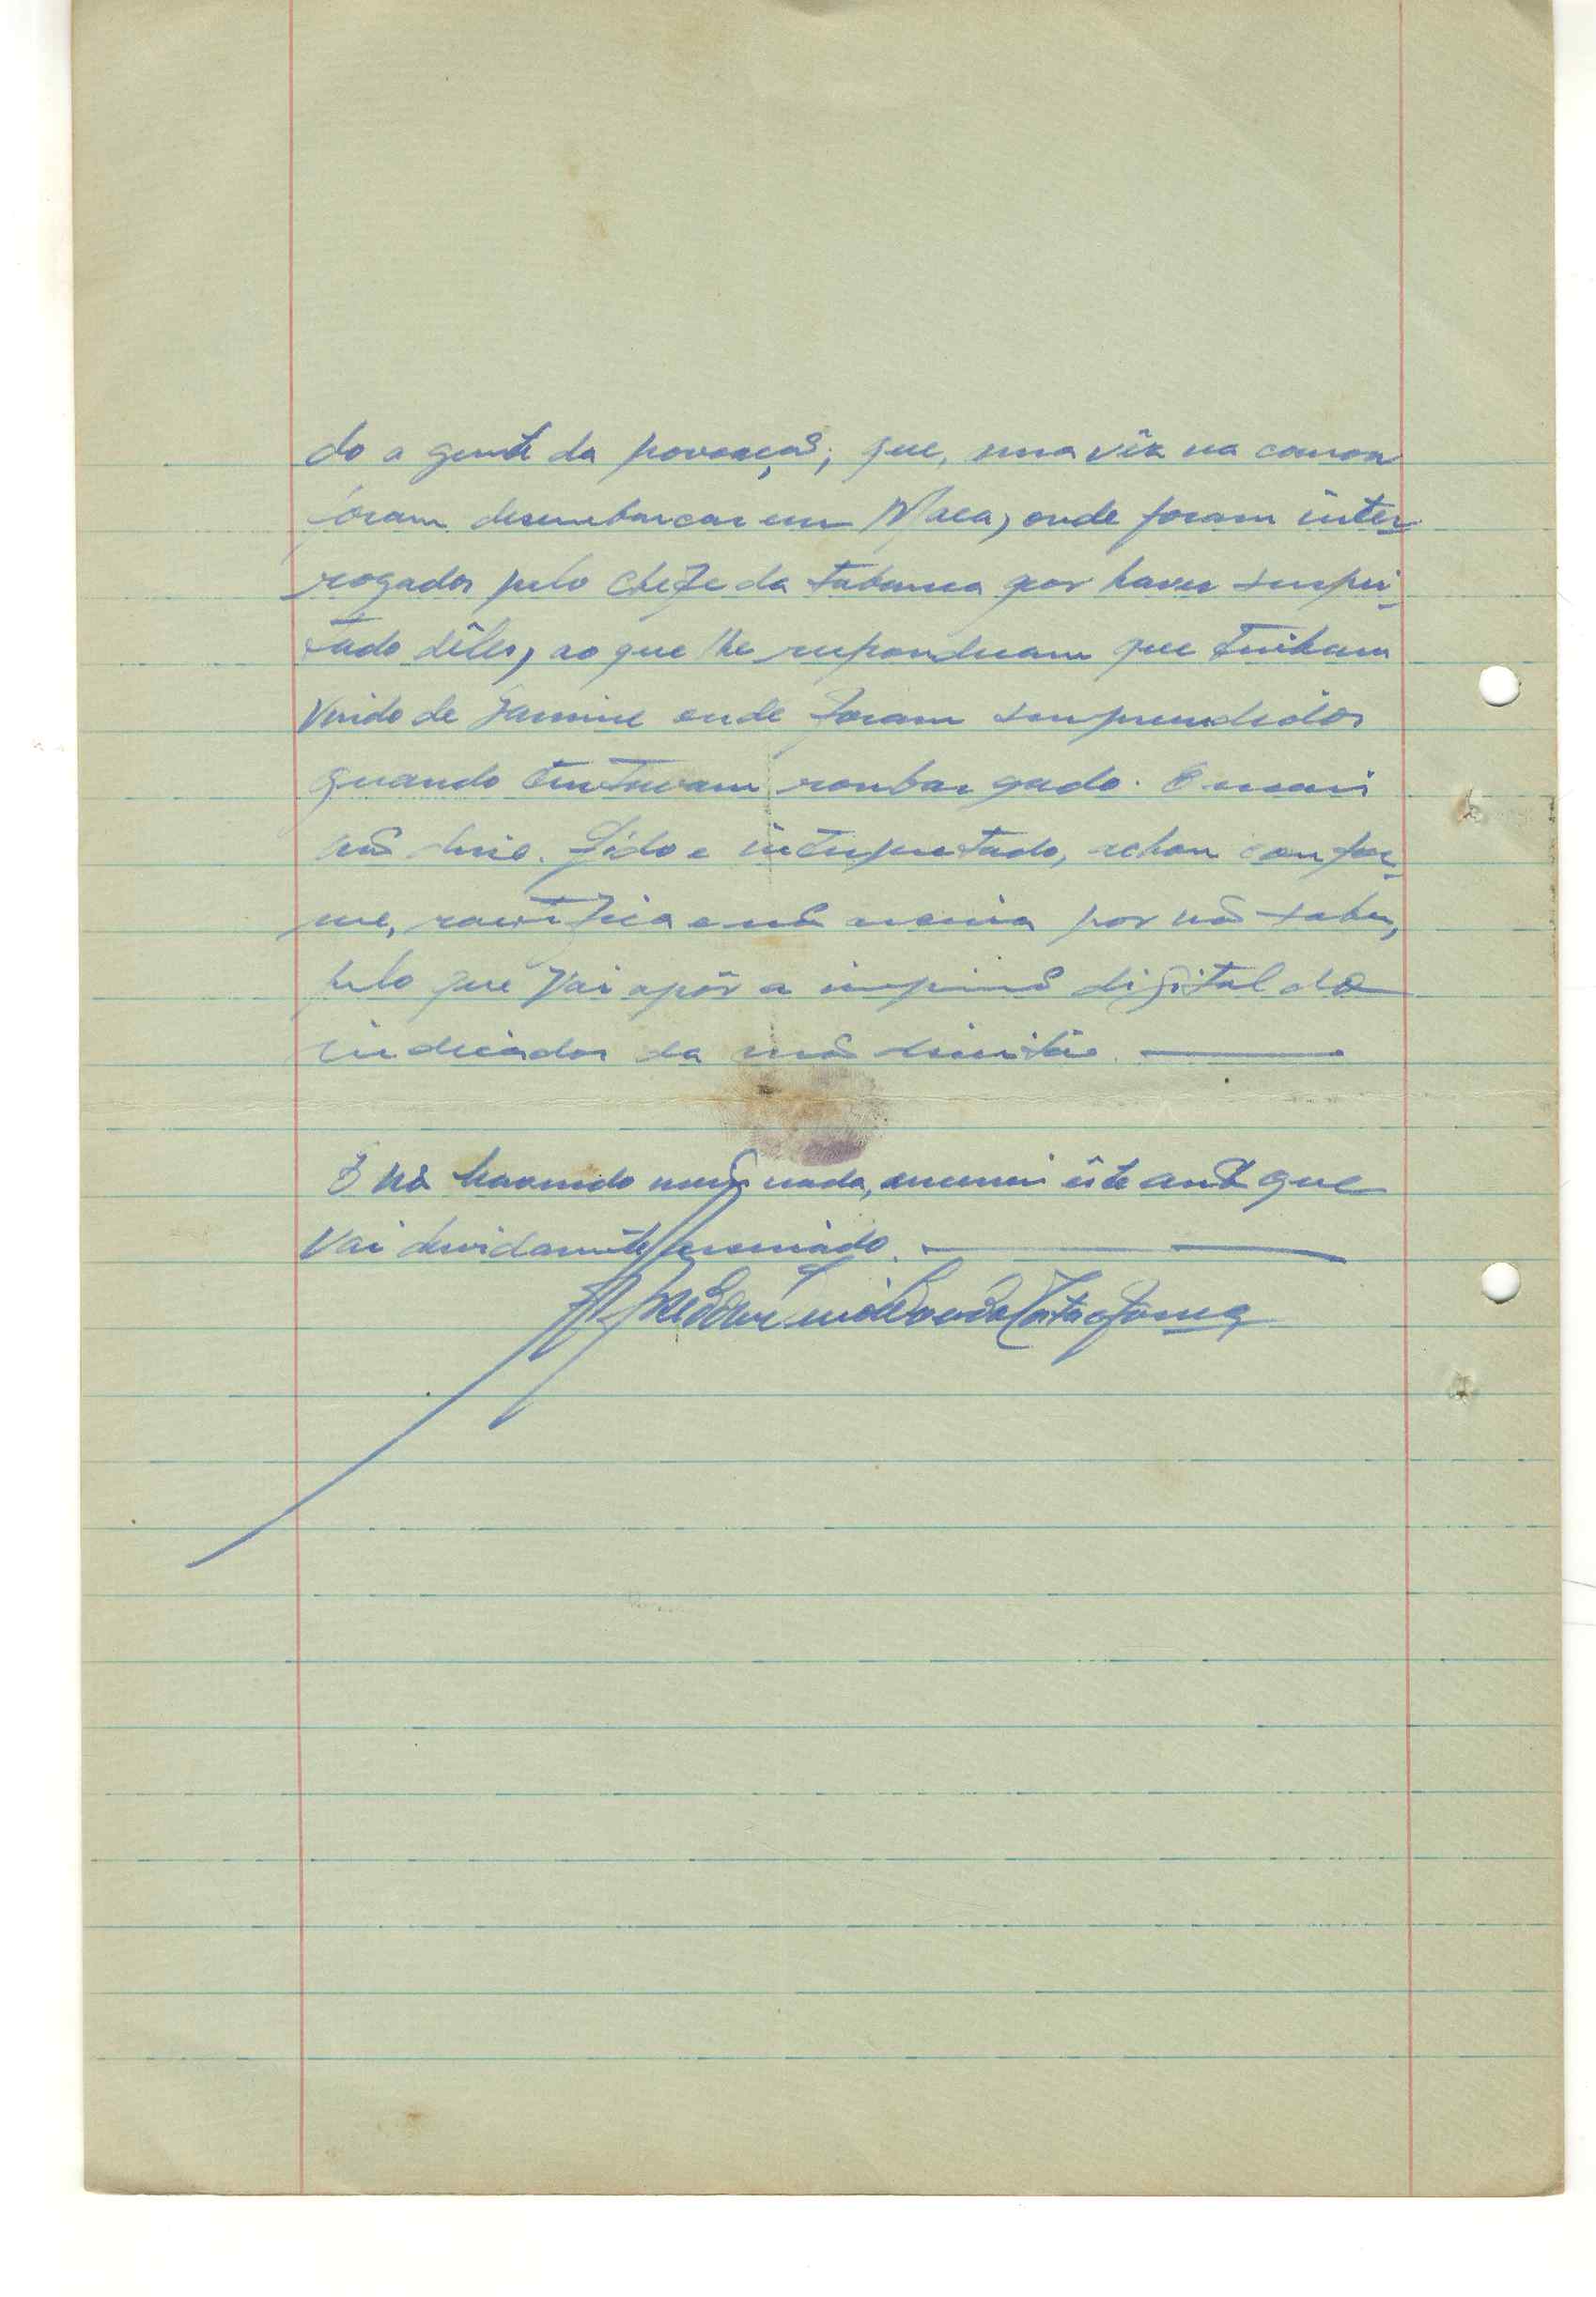 do a gente da povoação; que, uma vêz na canoa
foram desembarcar em Maca, onde foram inter-
rogados pelo chefe da tabanca por haver suspei-
tado dêles, ao que lhe responderam que tinham
vindo de Jamine onde foram surpreendidos
quando tentavam roubar gado. E mais
não disse. Lido e interpretado, achou confor-
me, ractifica e não assina por não saber,
pelo que vai apôr a impressão digital do
indicador da mão direita.
E não havendo mais nada, encerrei êste auto que
vai devidamente assinado.